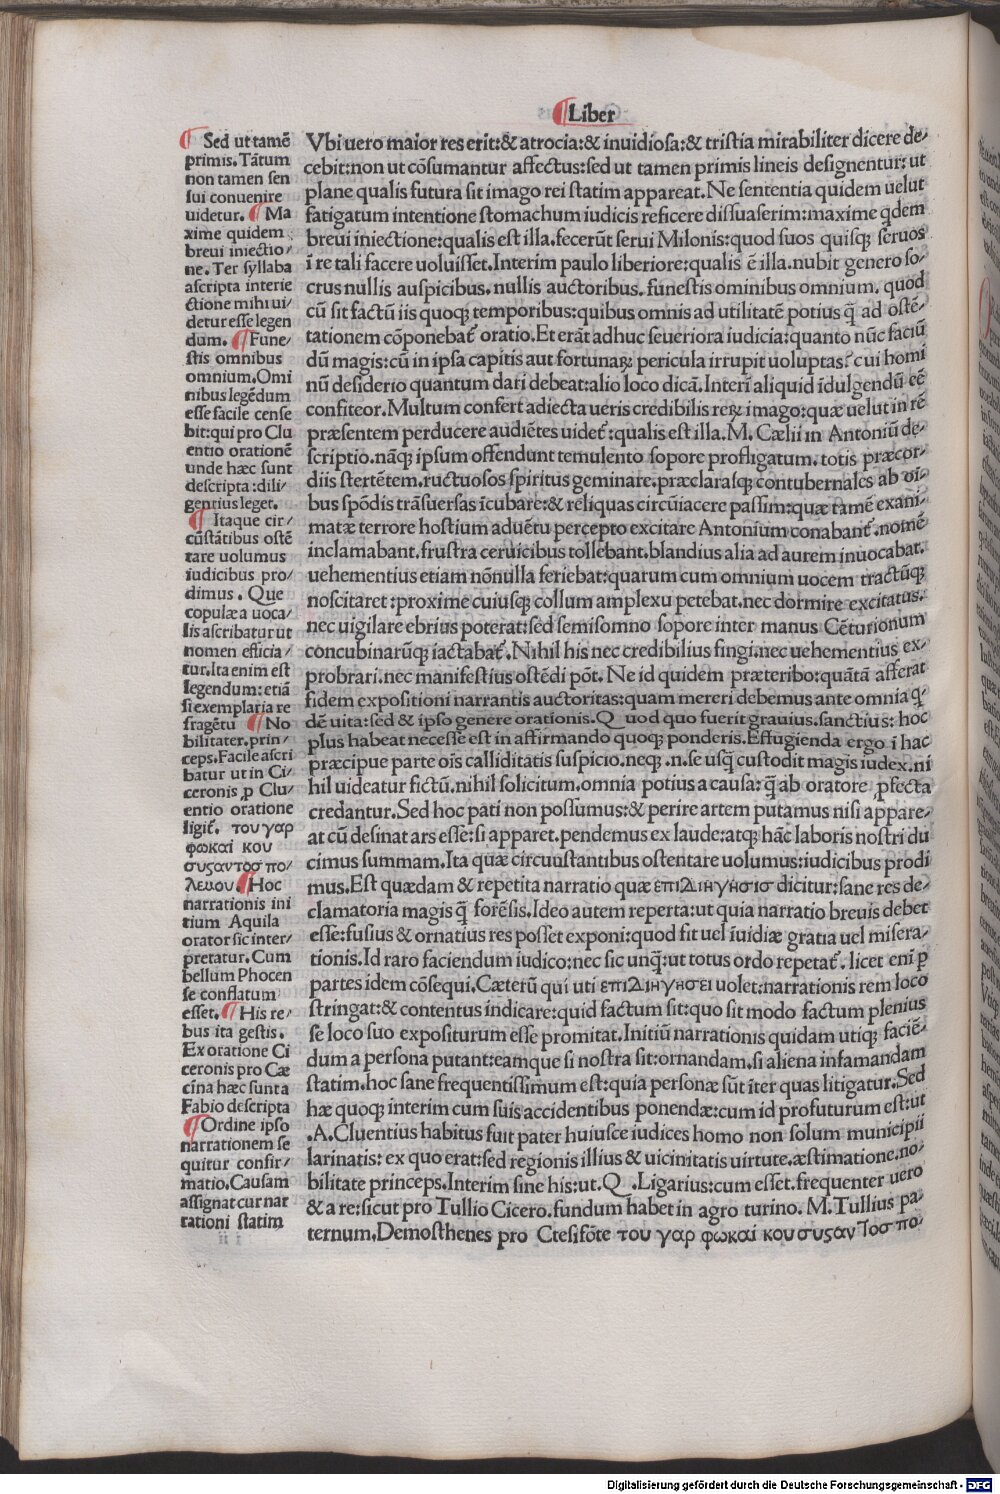 ¶ Liber
¶ Sed ut tamē
primis. Tātum
non tamen sen
sui conuenire
uidetur. ¶ Ma
xime quidem
breui iniectio/
ne. Ter syllaba
ascripta interie
ctione mihi ui/
detur esse legen
dum. ¶ Fune/
stis omnibus
omnium. Omi
nibus legēdum
esse facile cense
bit: qui pro Clu
entio orationē
unde hæc sunt
descripta: dili/
gentius leget.
¶ Itaque cir/
cūstātibus ostē
tare uolumus
iudicibus pro/
dimus. Que
copulæ a uoca/
lis ascribatur ut
nomen efficia/
tur. Ita enim est
legendum: etiā
si exemplaria re
fragētu ¶ No
bilitater. prin/
ceps. Facile ascri
batur ut in Ci/
ceronis ꝓ Clu/
entio oratione
ligit᷑. του γαρ
φωκαι κου
συςαντοσ πο/
λεμου. ¶ Hoc
narrationis ini
tium Aquila
orator sic inter/
pretatur. Cum
bellum Phocen
se conflatum
esset. ¶ His re/
bus ita gestis.
Ex oratione Ci
ceronis pro Cæ
cīna hæc sunt a
Fabio descripta
¶ Ordine ipso
narrationem se
quitur confir/
matio. Causam
assignat cur nar
rationi statim
Vbi uero maior res erit: & atrocia: & inuidiosa: & tristia mirabiliter dicere de/
cebit: non ut cōsumantur affectus: sed ut tamen primis lineis designentur: ut
plane qualis futura sit imago rei statim appareat. Ne sententia quidem uelut
fatigatum intentione stomachum iudicis reficere dissuaserim: maxime q̇dem
breui iniectione: qualis est illa. fecerūt serui Milonis: quod suos quisqꝫ seruos
ī re tali facere uoluisset. Interim paulo liberiore: qualis ē illa. nubit genero so/
crus nullis auspicibus. nullis auctoribus. funestis ominibus omnium. quod
cū sit factū iis quoqꝫ temporibus: quibus omnis ad utilitatē potius q̄ ad ostē/
tationem cōponebat᷑ oratio. Et erāt adhuc seueriora iudicia: quanto nūc faciū
dū magis: cū in ipsa capitis aut fortunaꝝ pericula irrupit uoluptas? cui homi
nū desiderio quantum dari debeat: alio loco dicā. Interī aliquid īdulgendū eē
confiteor. Multum confert adiecta ueris credibilis reꝝ imago: quæ uelut in rē
præsentem perducere audiētes uidet᷑: qualis est illa. M. Cælii in Antoniū de/
scriptio. nāqꝫ ipsum offendunt temulento sopore profligatum. totis præcor/
diis stertētem. ructuosos spiritus geminare. præclarasqꝫ contubernales ab oī/
bus spōdis trāsuersas īcubare: & reliquas circūiacere passim: quæ tamē exani/
matæ terrore hostium aduētu percepto excitare Antonium conabant᷑. nomē
inclamabant. frustra ceruicibus tollebant. blandius alia ad aurem inuocabat.
uehementius etiam nōnulla feriebat: quarum cum omnium uocem tractūqꝫ
noscitaret: proxime cuiusqꝫ collum amplexu petebat. nec dormire excitatus:
nec uigilare ebrius poterat: sed semisomno sopore inter manus Cēturionum
concubinarūqꝫ iactabat᷑. Nihil his nec credibilius fingi. nec uehementius ex/
probrari. nec manifestius ostēdi pōt. Ne id quidem præteribo: quātā afferat
fidem expositioni narrantis auctoritas: quam mereri debemus ante omnia q̇/
dē uita: sed & ipso genere orationis. Q uod quo fuerit grauius. sanctius: hoc
plus habeat necesse est in affirmando quoqꝫ ponderis. Effugienda ergo ī hac
præcipue parte oīs calliditatis suspicio. neqꝫ .n. se usq̄ custodit magis iudex. ni
hil uideatur fictū. nihil solicitum. omnia potius a causa: q̄ ab oratore ꝓfecta
credantur. Sed hoc pati non possumus: & perire artem putamus nisi appare/
at cū desinat ars esse: si apparet. pendemus ex laude: atqꝫ hāc laboris nostri du
cimus summam. Ita quæ circunstantibus ostentare uolumus: iudicibus prodi
mus. Est quædam & repetita narratio quæ επιΔιηγησισ dicitur: sane res de/
clamatoria magis q̄ forēsis. Ideo autem reperta: ut quia narratio breuis debet
esse: fusius & ornatius res posset exponi: quod fit uel īuidiæ gratia uel misera/
tionis. Id raro faciendum iudico: nec sic unq̄: ut totus ordo repetat᷑. licet enī ꝑ
partes idem cōsequi. Cæterū qui uti επιΔιηγησει uolet: narrationis rem loco
stringat: & contentus indicare: quid factum sit: quo sit modo factum plenius
se loco suo expositurum esse promitat. Initiū narrationis quidam utiqꝫ faciē/
dum a persona putant: eamque si nostra sit: ornandam. si aliena infamandam
statim. hoc sane frequentissimum est: quia personæ sūt īter quas litigatur. Sed
hæ quoqꝫ interim cum suis accidentibus ponendæ: cum id profuturum est: ut
.A. Cluentius habitus fuit pater huiusce iudices homo non solum municipii
larinatis: ex quo erat: sed regionis illius & uicinitatis uirtute. æstimatione. no/
bilitate princeps. Interim sine his: ut. Q . Ligarius: cum esset. frequenter uero
& a re: sicut pro Tullio Cicero. fundum habet in agro turino. M. Tullius pa/
ternum. Demosthenes pro Ctesifōte του γαρ φωκαί κου συςαντοσ πο/
Digitalisierung gefördert durch die Deutsche Forschungsgemeinschaft - DFG